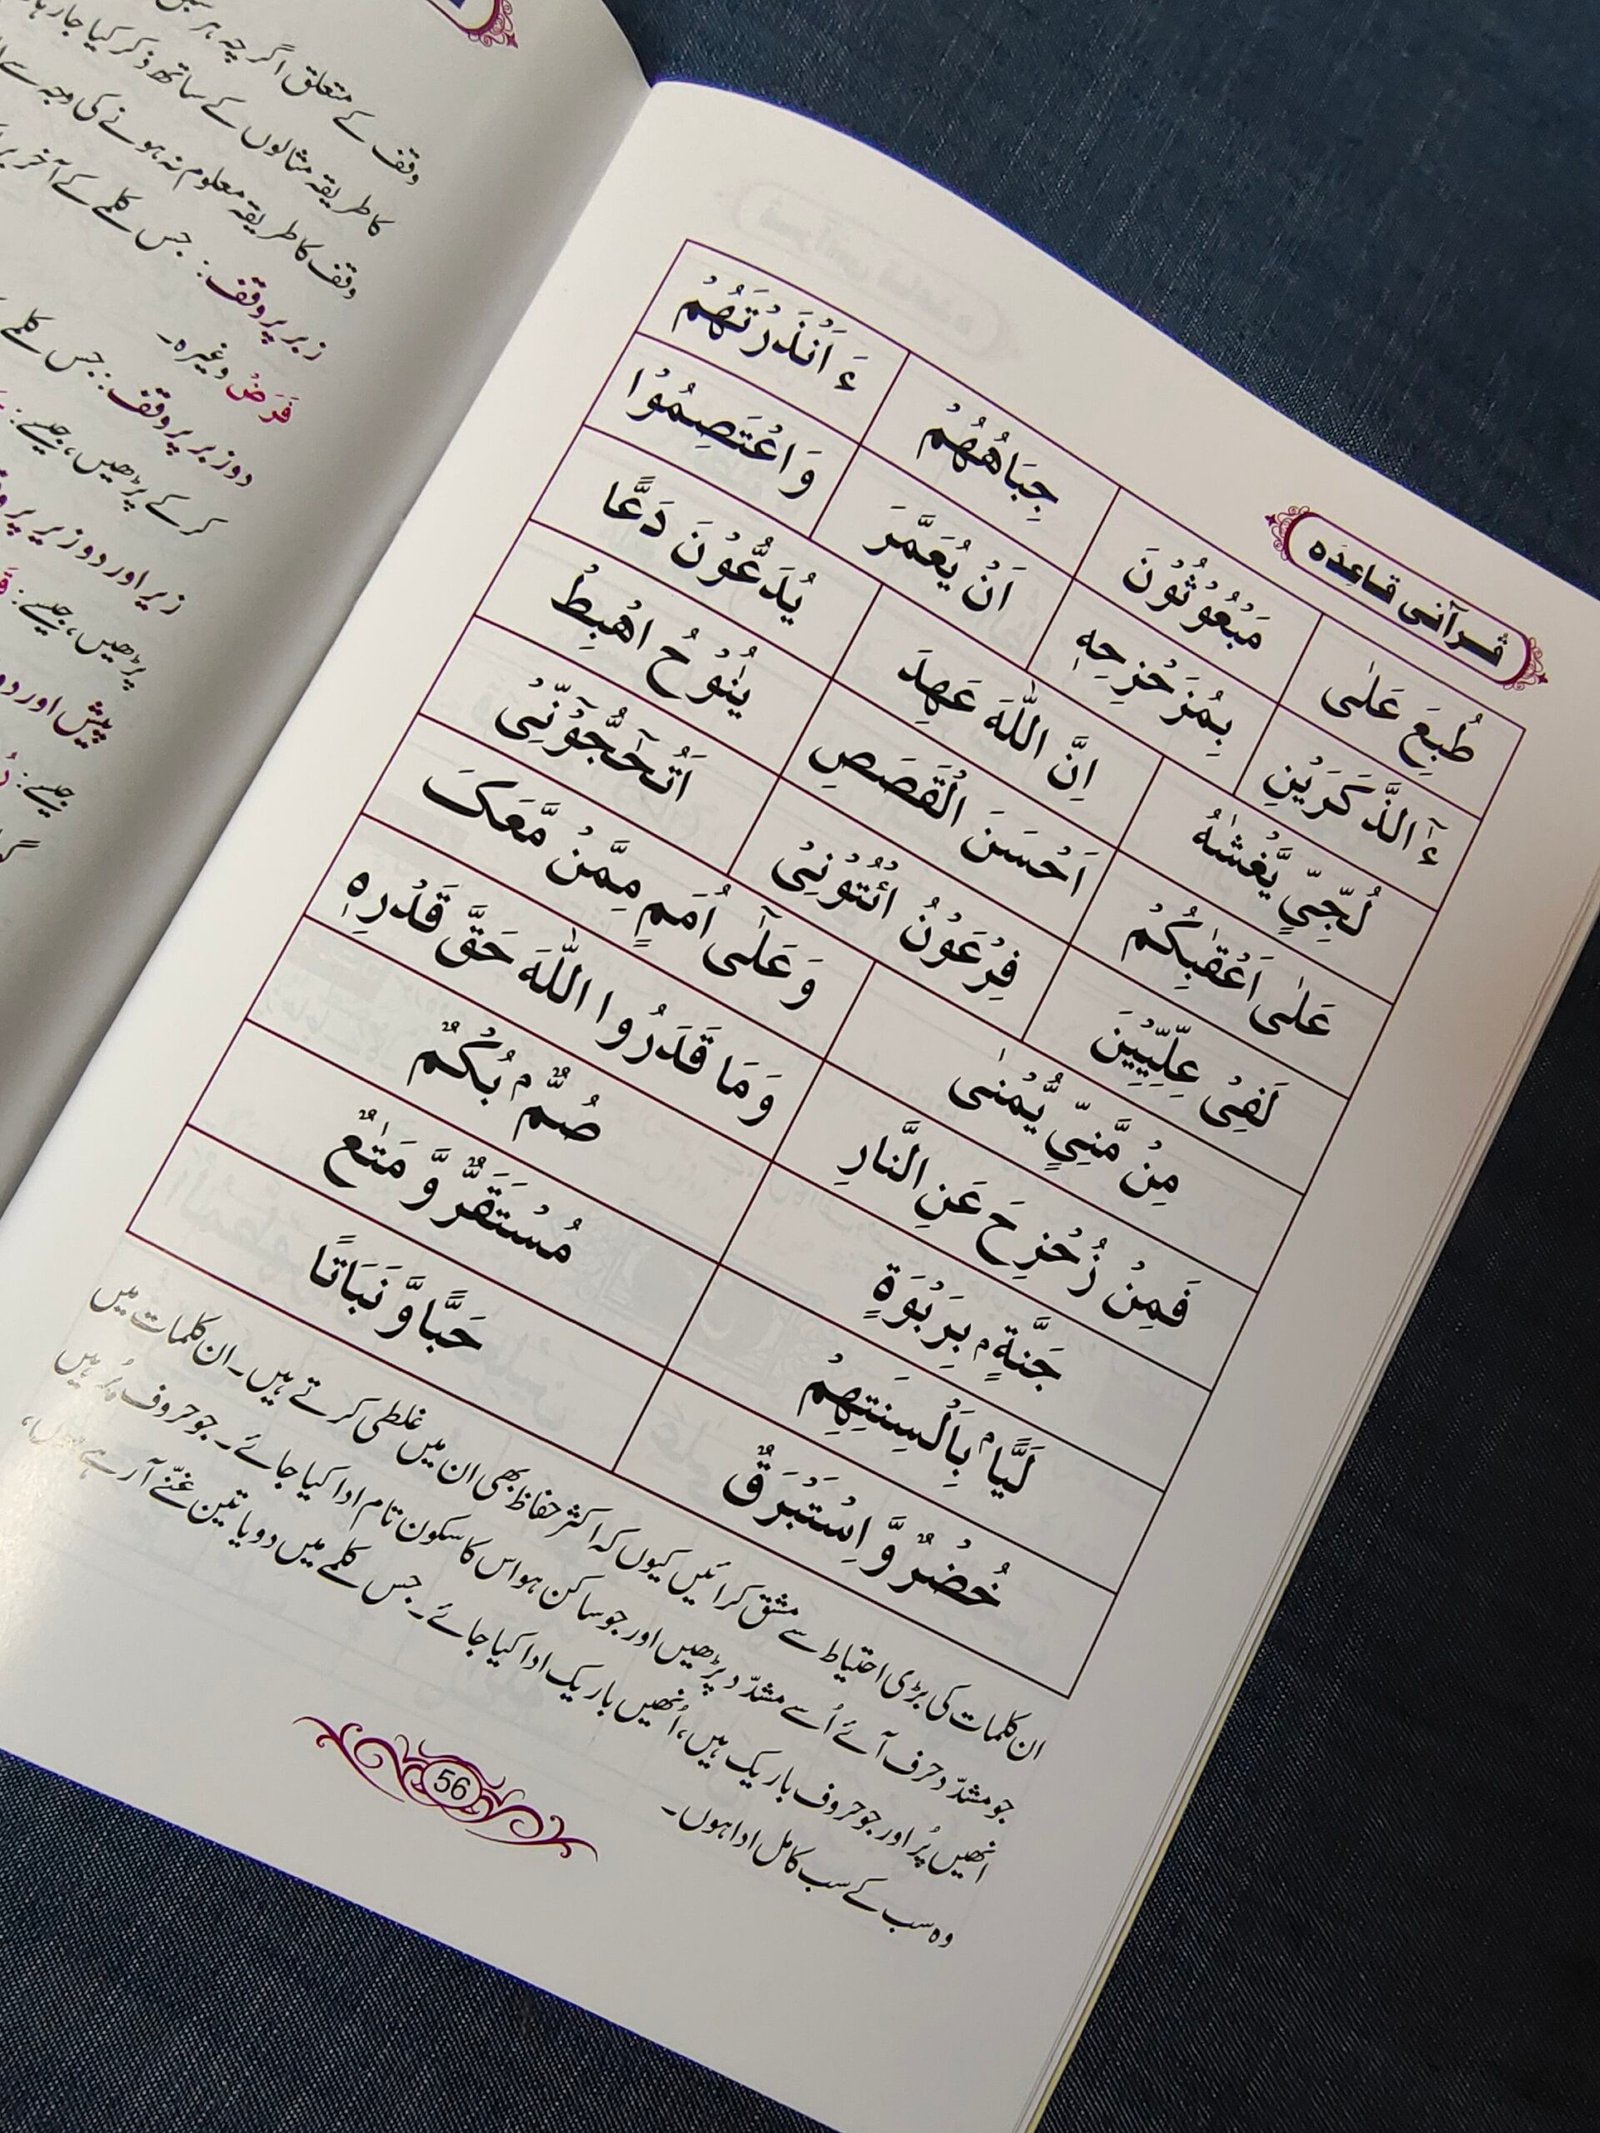 قرآنی قاعِدَہ
طُبِعَ عَلٰی مَبْعُوْثُوْنَ جِبَاهُهُمْ ءَاَنْذَرْتَهُمْ
ءٰٓالذَّكَرَيْنِ بِمُزَحْزِحِهٖ اَنْ يُّعَمَّرَ وَاعْتَصِمُوْا
لُجِّيٍّ يَّغْشٰىهُ اِنَّ اللّٰهَ عَهِدَ يُدَعُّوْنَ دَعًّا
عَلٰٓى اَعْقٰبِكُمْ اَحْسَنَ الْقَصَصِ يٰنُوْحُ اهْبِطْ
لَفِيْ عِلِّيِّيْنَ فِرْعَوْنُ ائْتُوْنِيْ اَتُحَآجُّوْٓنِّيْ
مِنْ مَّنِيٍّ يُّمْنٰى وَعَلٰٓى اُمَمٍ مِّمَّنْ مَّعَكَ
فَمِنْ زُحْزِحَ عَنِ النَّارِ وَمَا قَدَرُوا اللّٰهَ حَقَّ قَدْرِهٖ
جَنَّةٍۭ بِرَبْوَةٍ صُمٌّۢ بُكْمٌ
لَيًّاۢ بِاَلْسِنَتِهِمْ مُسْتَقَرٌّ وَّمَتٰعٌ
خُضْرٌ وَّاِسْتَبْرَقٌ حَبًّا وَّنَبَاتًا
ان کلمات کی بڑی احتیاط سے مشق کرائیں کیوں کہ اکثر حفاظ بھی ان میں غلطی کرتے ہیں۔ ان کلمات میں
جو مشدّد حرف آئے اُسے مشدّد پڑھیں اور جو ساکن ہو اس کا سکون تام ادا کیا جائے۔ جو حروف پُر ہیں
انھیں پُر اور جو حروف باریک ہیں، اُنھیں باریک ادا کیا جائے۔ جس کلمے میں دو یا تین غنّے آ رہے ہوں،
وہ سب کے سب کامل ادا ہوں۔
56
وقف کے متعلق اگرچہ ہر
کا طریقہ مثالوں کے ساتھ ذکر کیا جا رہا
وقف کا طریقہ معلوم نہ ہونے کی وجہ سے
زبر پر وقف: جس کلمے کے آخر پر
فَرَضْ وغیرہ۔
دو زبر پر وقف: جس کلمے
کر کے پڑھیں، جیسے:
زیر اور دو زیر پر
پڑھیں، جیسے:
پیش اور دو
جیسے: